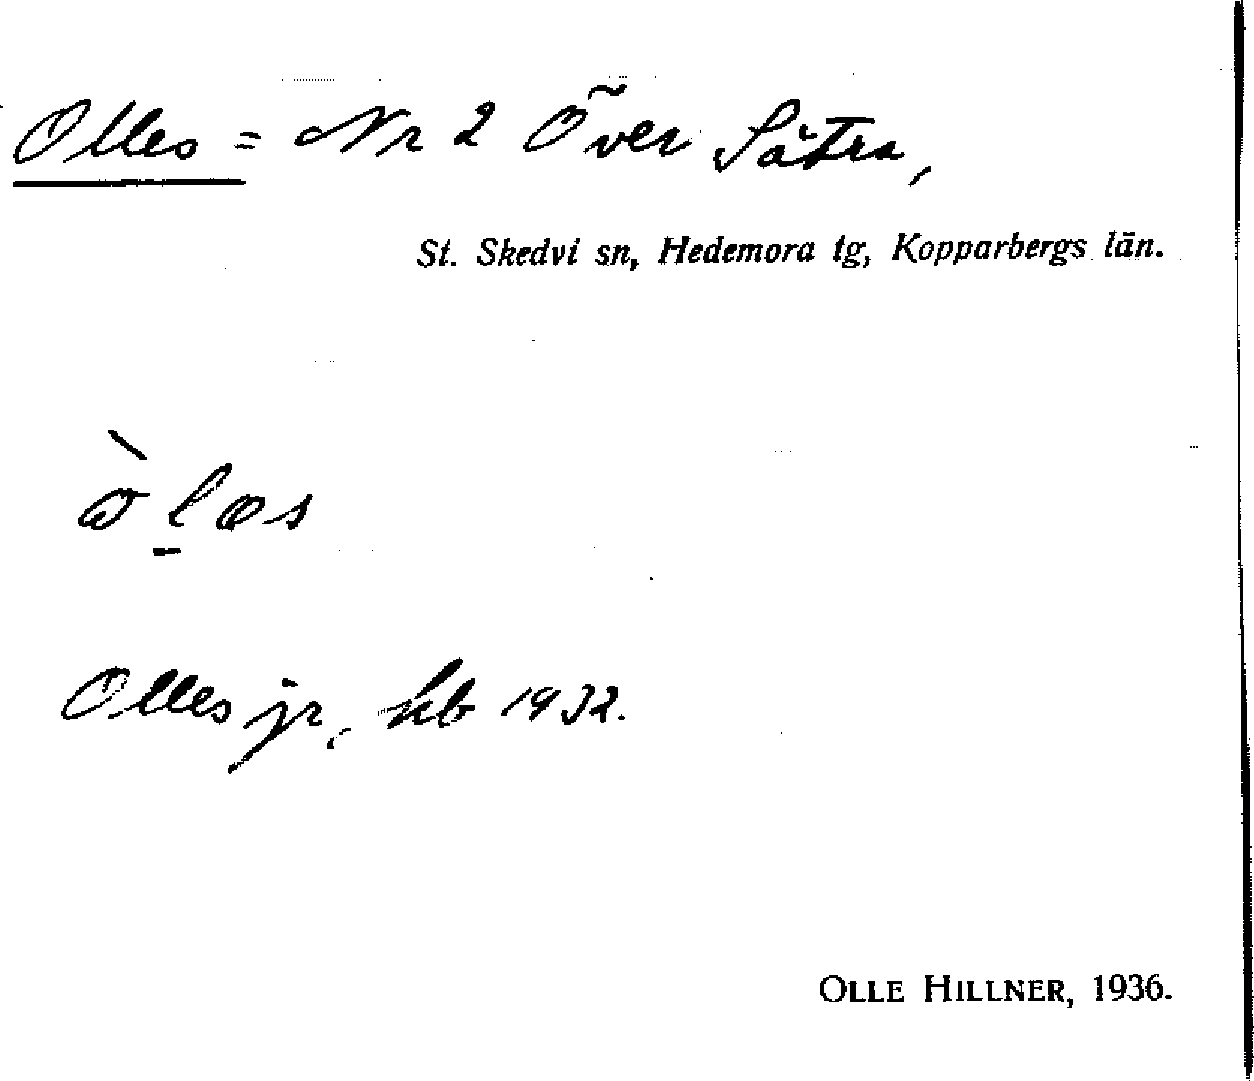 Olles = Nr 2 Över Sätra,
St. Skedvi sn, Hedemora tg, Kopparbergs län.
Olles jr, kb 1932.
OLLE HILLNER, 1936.